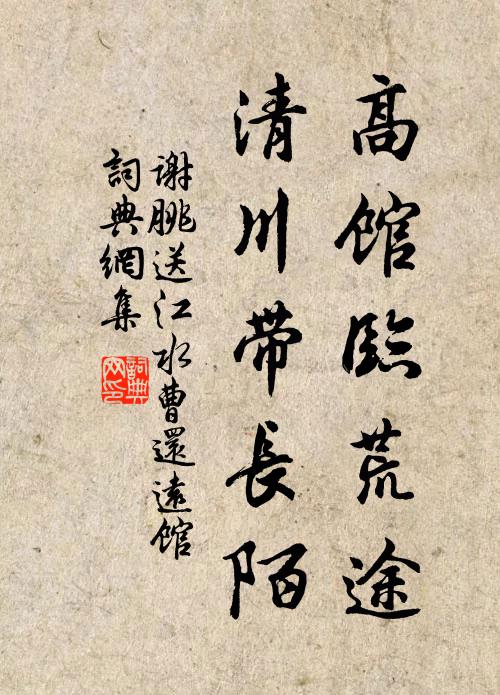 高館臨荒途
清川帶長陌
謝脁送江水曹還遠館
詞典網集
詞典網印